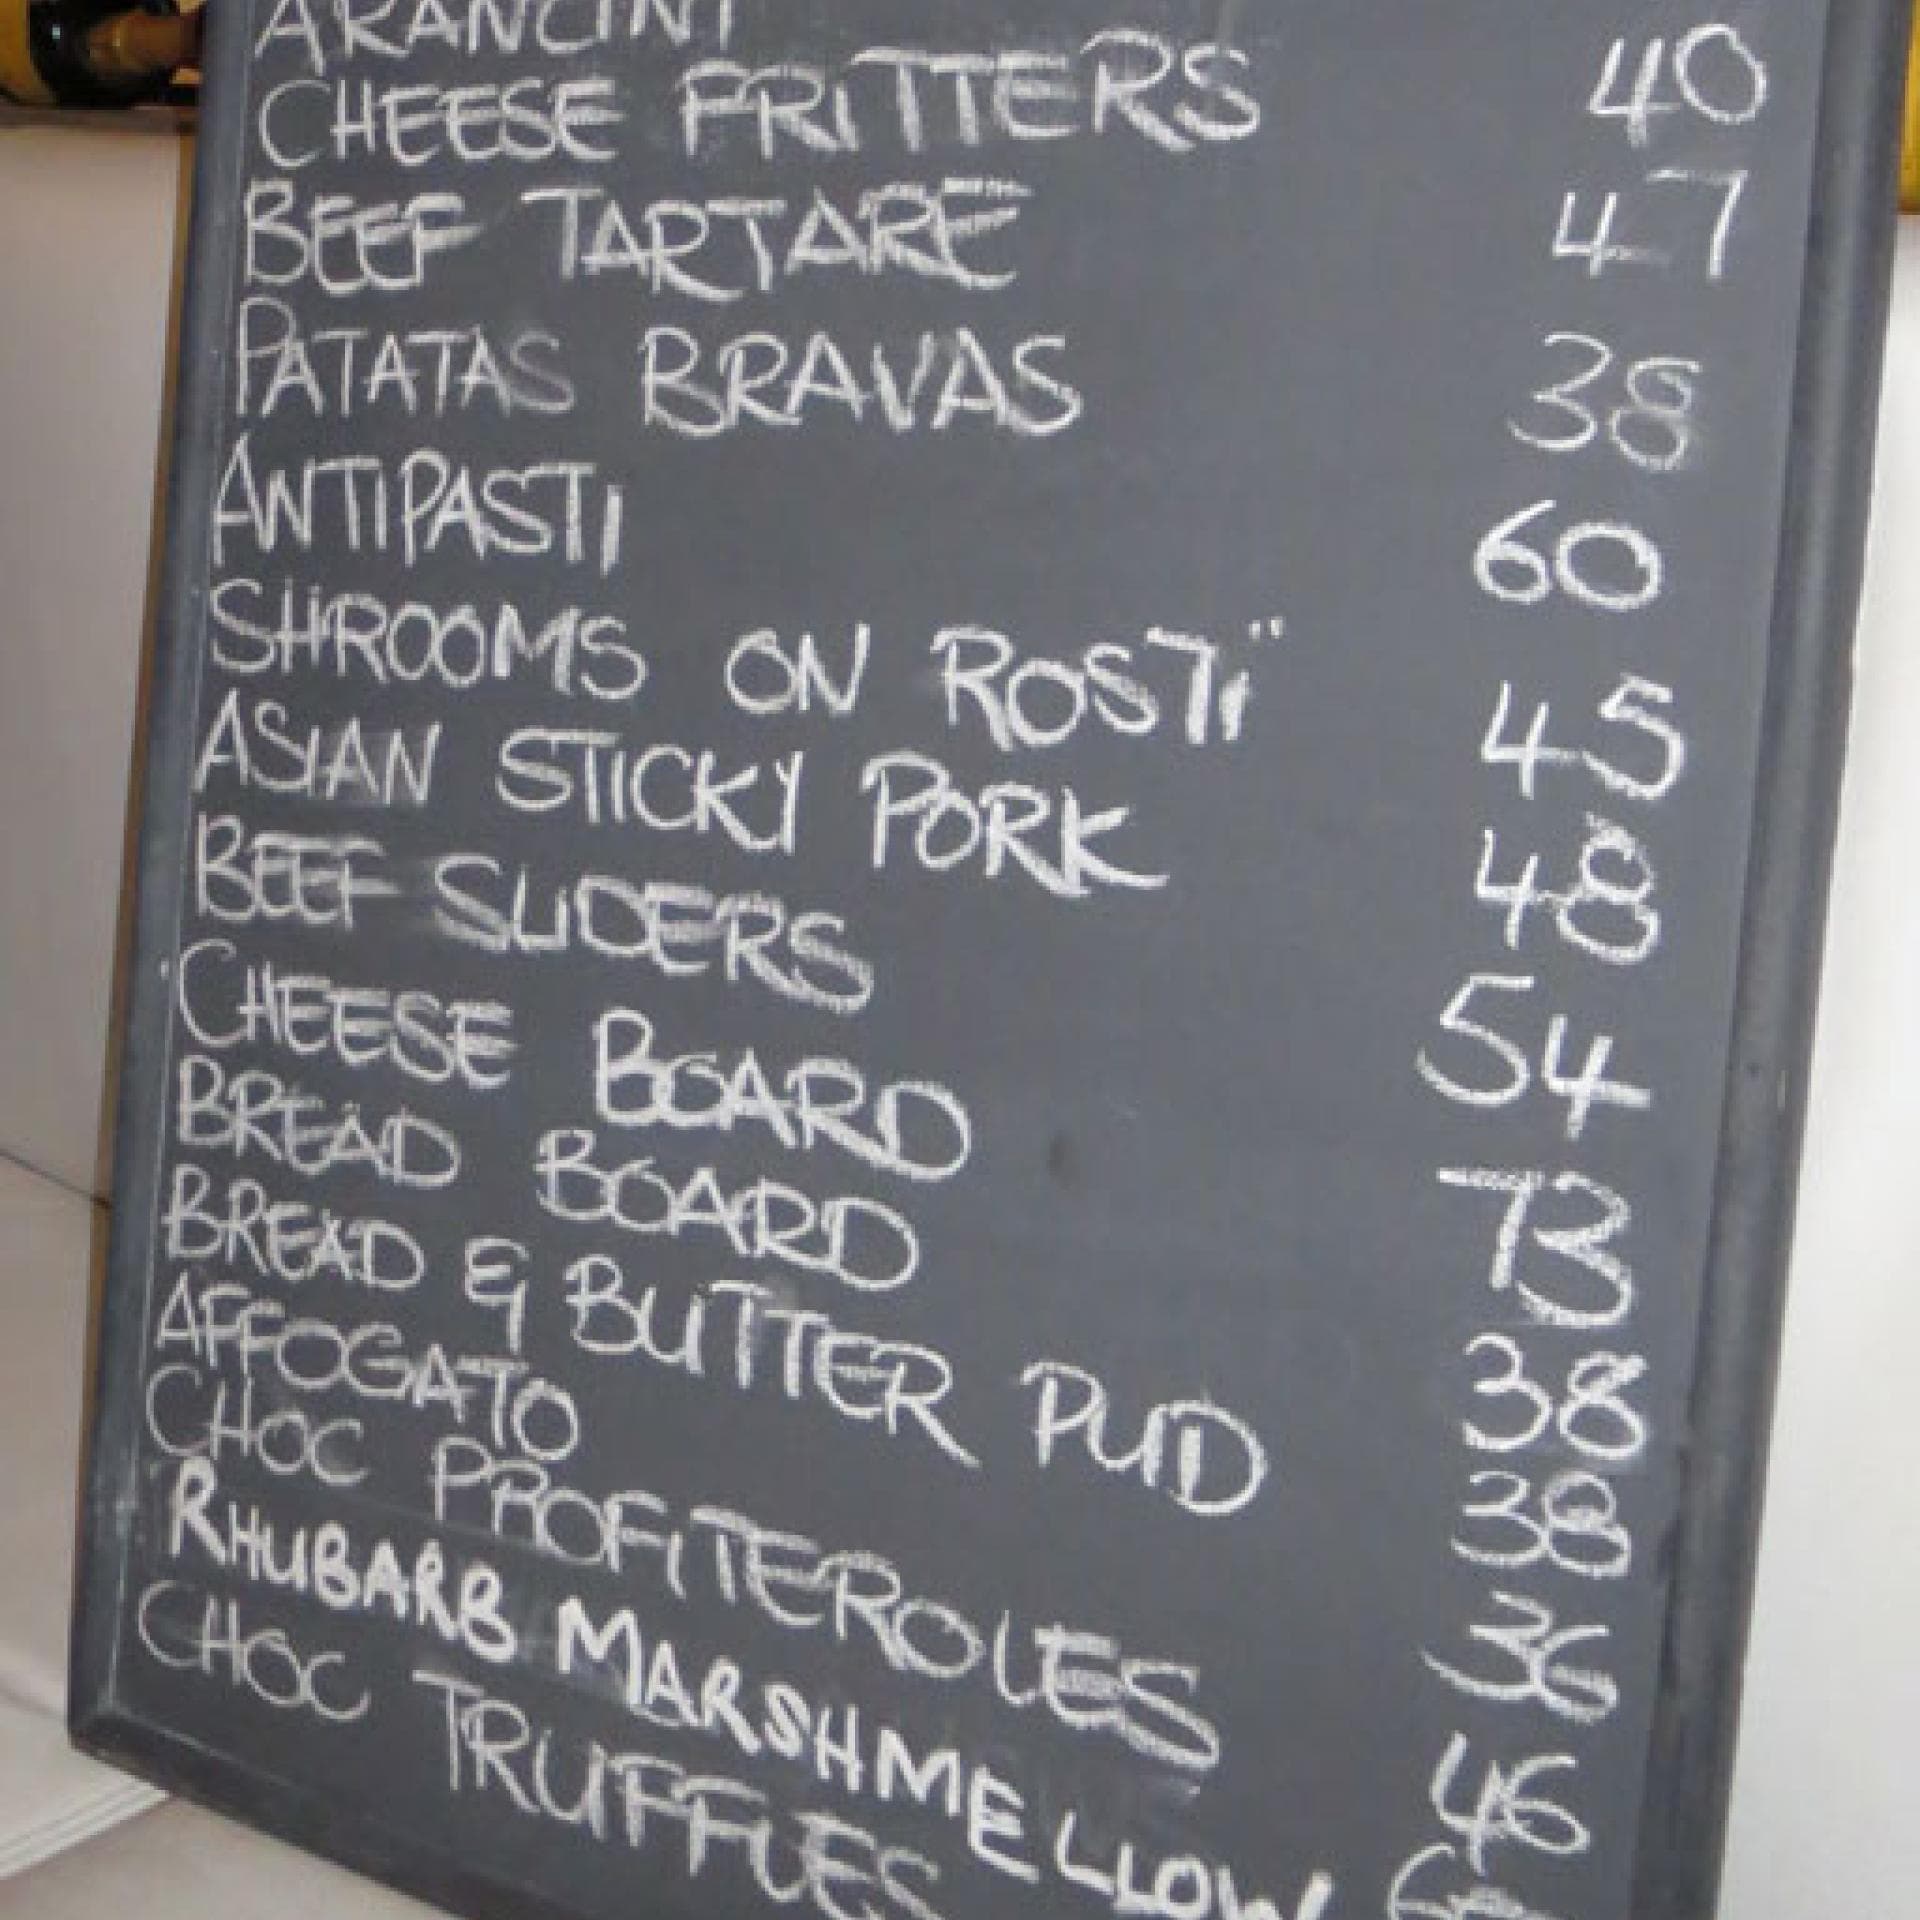 ARANCINI
CHEESE FRITTERS 40
BEEF TARTARE 47
PATATAS BRAVAS 38
ANTIPASTI 60
SHROOMS ON ROSTI 45
ASIAN STICKY PORK 48
BEEF SLIDERS 54
CHEESE BOARD 73
BREAD BOARD 38
BREAD & BUTTER PUD 38
AFFOGATO 36
CHOC PROFITEROLES 46
RHUBARB MARSHMELLOW
CHOC TRUFFLES